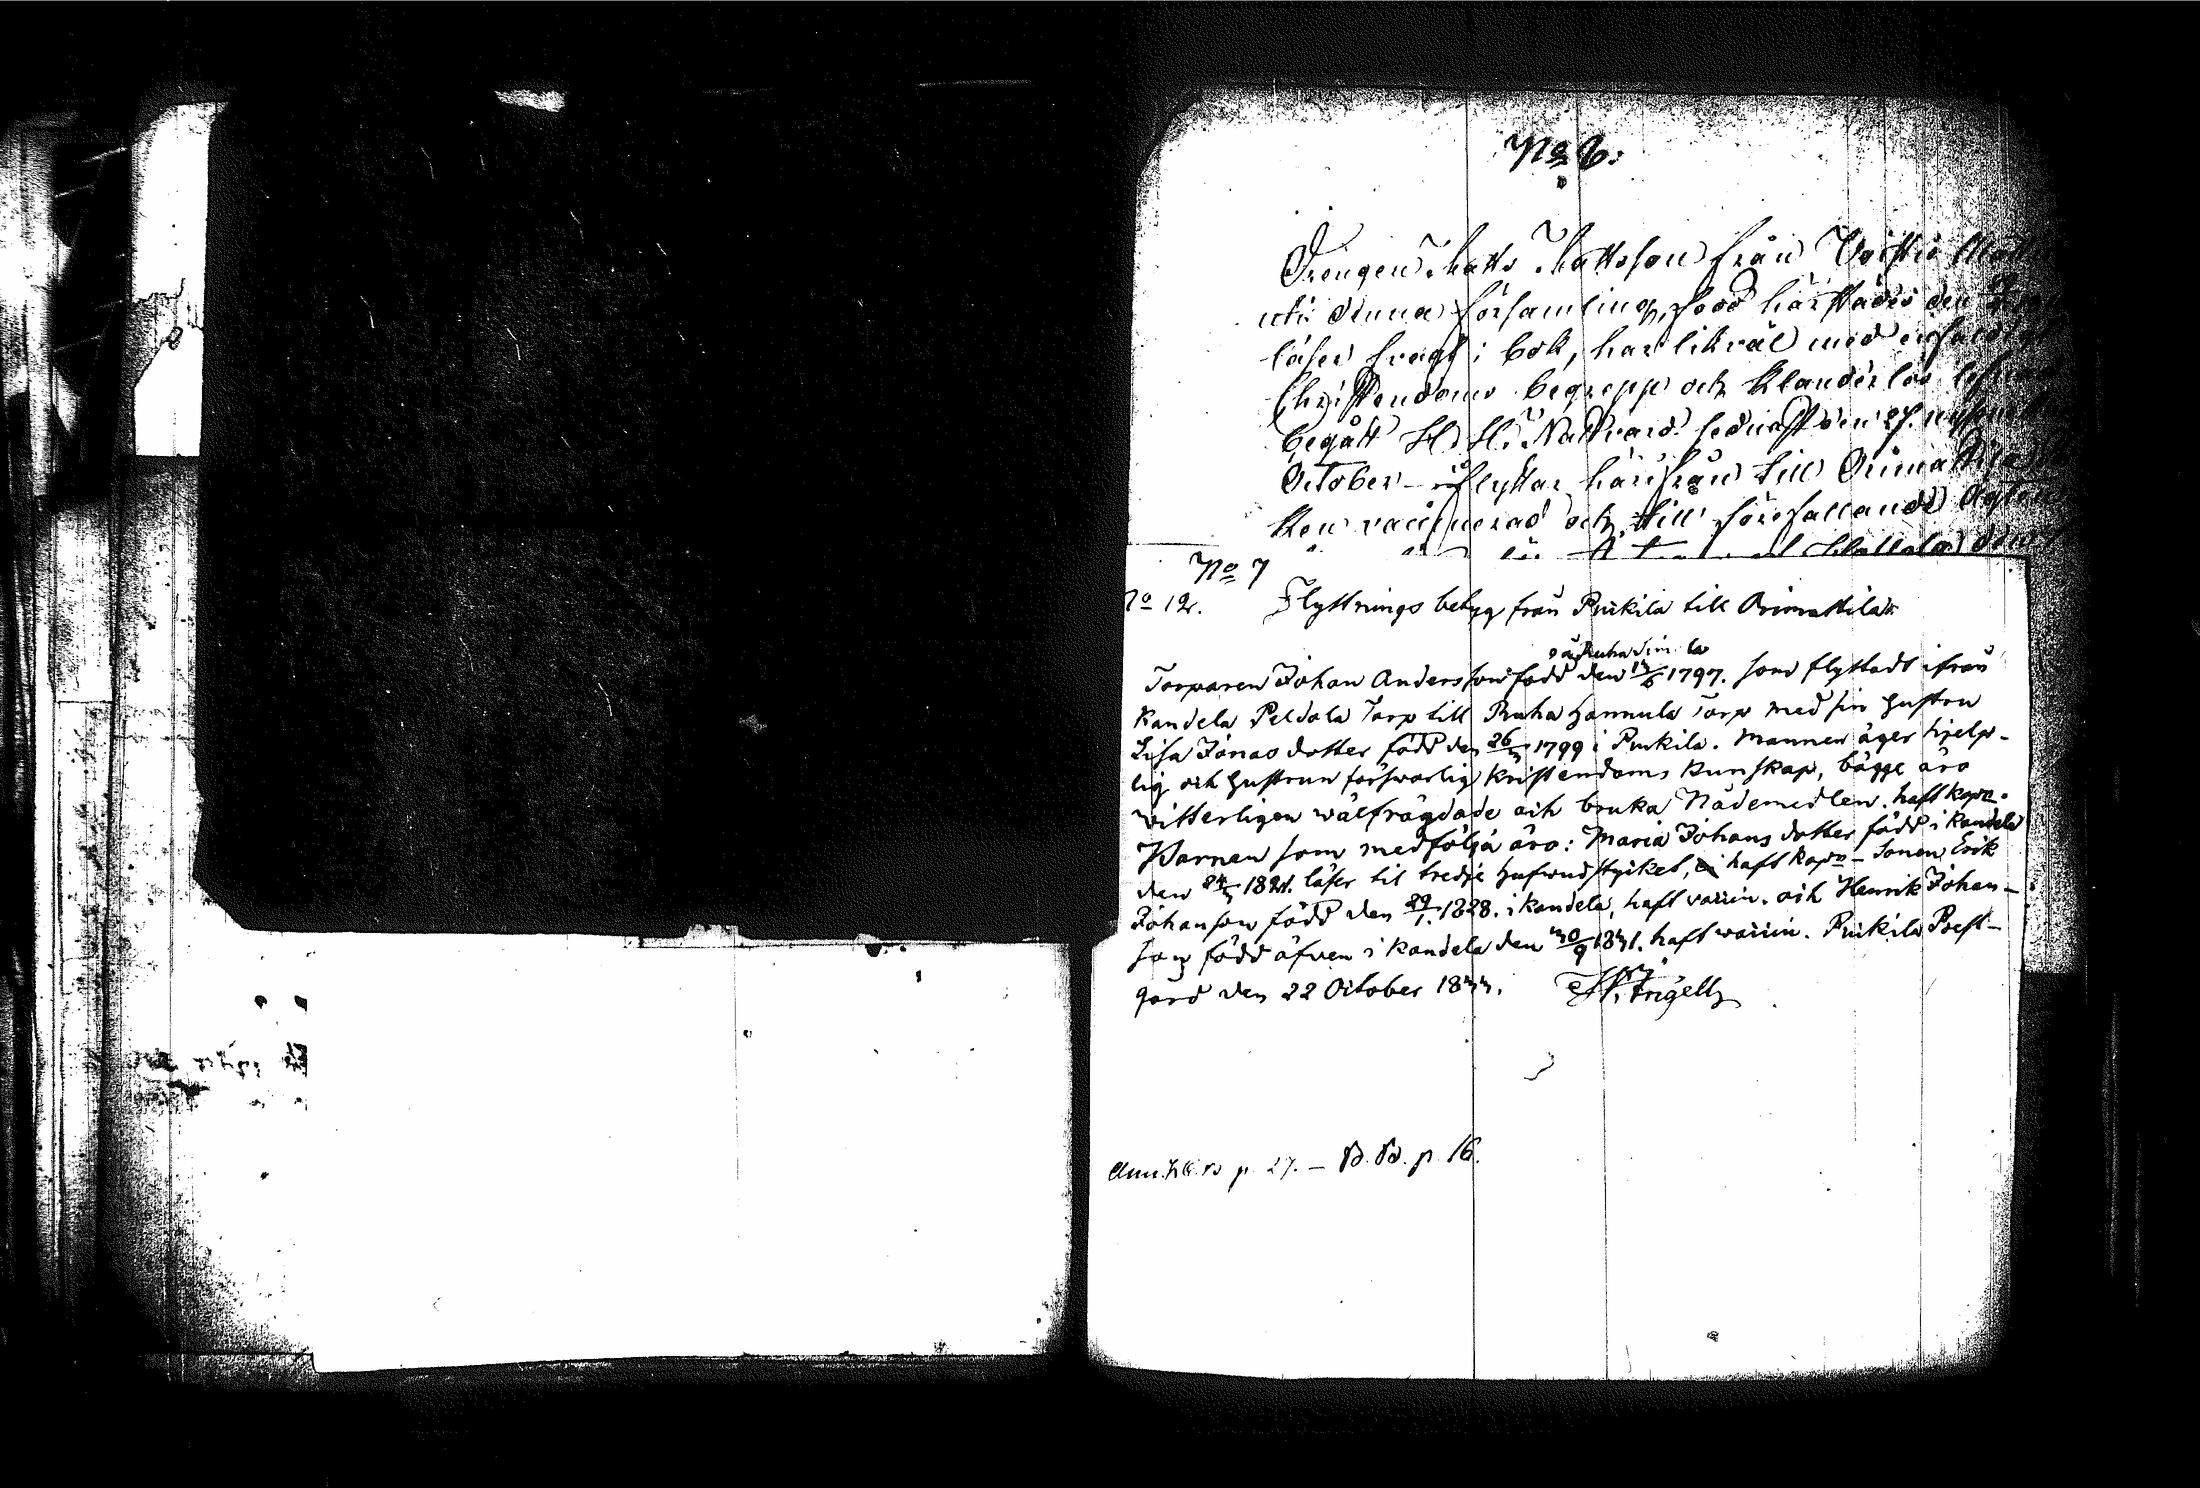 No 6.
Drengen Matts Mattsson från Voistio
uti denna församling, född härstädes den
läser svagt i bok, har likväl med enfaldigt
Christendoms begrepp och klanderlös lefnad
begått H. H. Nattvard sednast den 27.
October - flyttar härifrån till Orimattila
Ken vaccinerad och till förefallande
Hollola den
No 7
No 12. Flyttnings betyg från Pukila till Orimattila
på Ruha
Torparen Johan Andersson född den 1797. som flyttadt ifrån
Kandela Peldola Torp till Ruha Hannula Torp med sin hustru
Lisa Jonas dotter född den 26/3 1799 i Pukila. Mannen äger hjelp-
lig och hustrun försvarlig Kristendoms kunskap, bägge äro
witterligen wälfrägdade och bruka Nådemedlen. haft kopp.
Barnen som medfölja äro: Maria Johans dotter född i Kandela
den 24/3 1821. läser til tredje hufwudstycket, haft kopp - Sonen Erik
Johansson född den 29/1. 1828. i Kandela, haft vaccin. och Henrik Johan-
son född äfven i Kandela den 30/9 1831. haft vaccin. Pukila Prest-
gård den 22 October 1833. Frigell
p. 27. - B. B. p. 16.